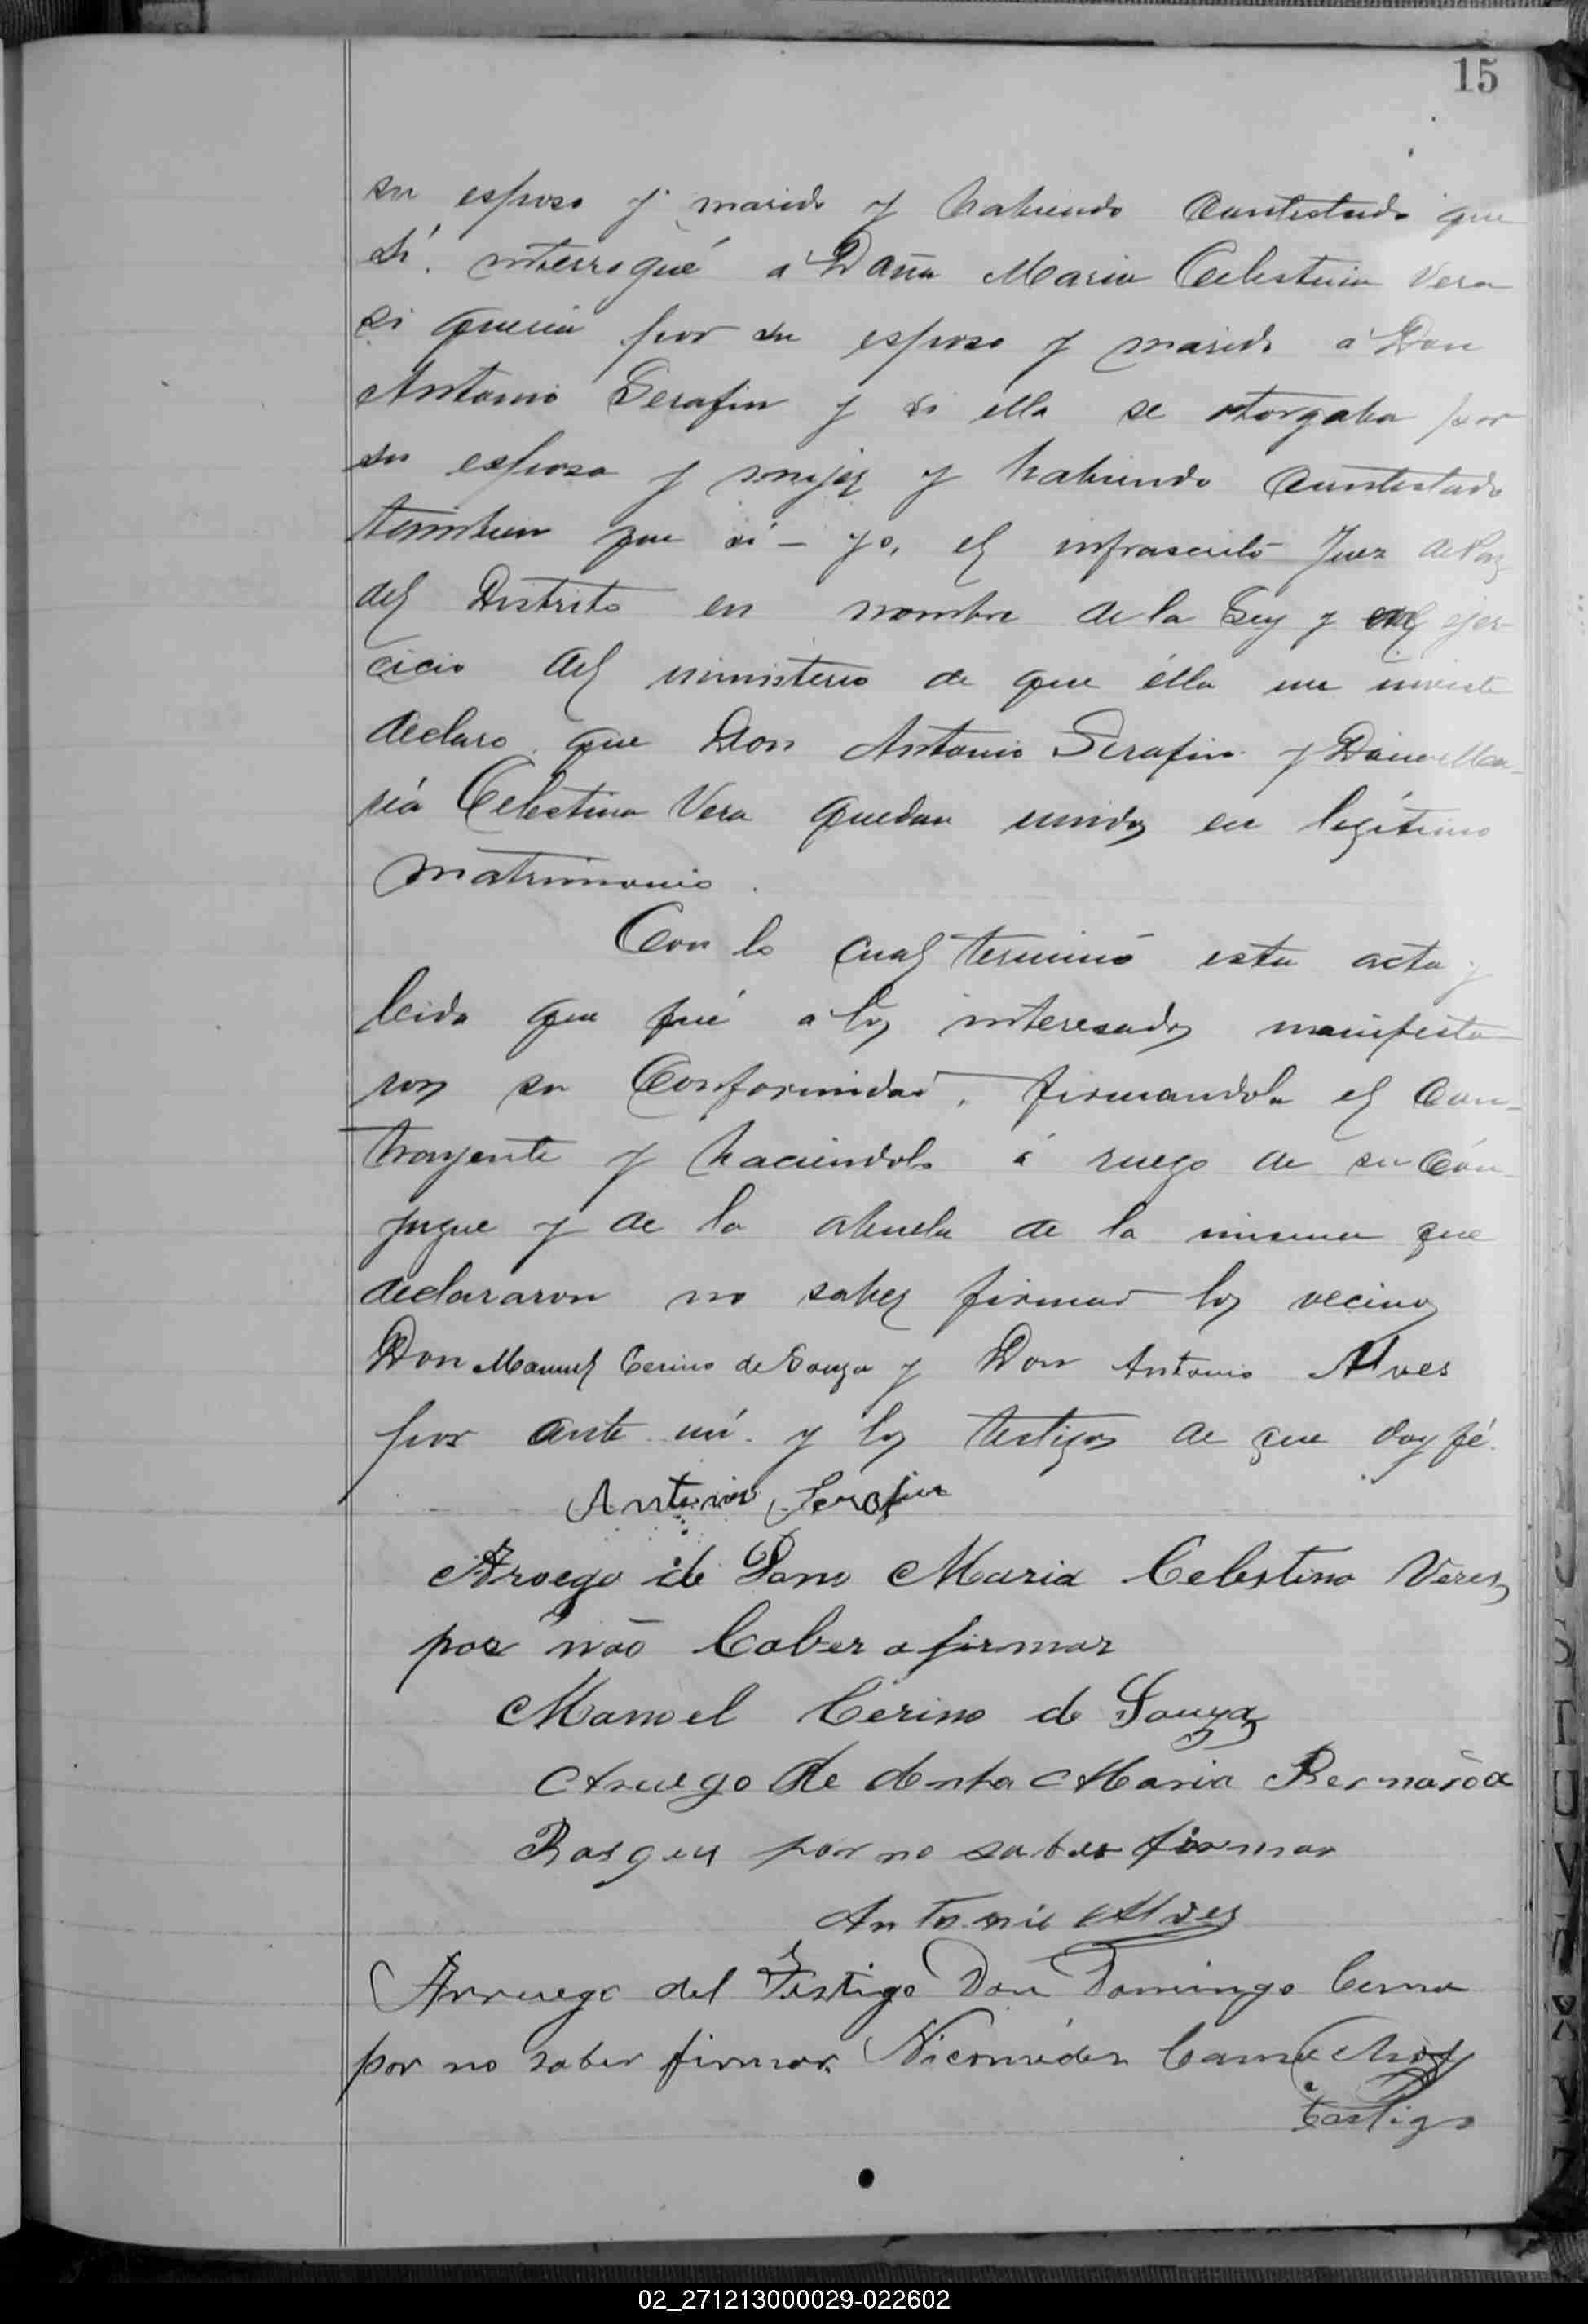 15
su esposo y marido y habiendo contestado que
sí, interrogué á Doña Maria Celestina Vera
si queria por su esposo y marido á Don
Antonio Serafin y si ella se otorgaba por
su esposa y mujer y habiendo contestado
tambien que sí - yo, el infrascrito Juez de Paz
del Distrito en nombre de la Ley y en ejer-
cicio del ministerio de que élla me inviste
declaro que Don Antonio Serafin y Doña Ma-
ria Celestina Vera quedan unidos en legítimo
matrimonio.
Con lo cual terminó esta acta y
leida que fué a los interesados manifesta
ron su conformidad, firmandola el con-
trayente y haciendolo á ruego de su cón-
yugue y de la abuela de la misma que
declararon no saber firmar los vecinos
Don Manuel Cerino de Souza y Don Antonio Alves
por ante mí y los testigos de que doy fé.
Antonio Serafin
Aroego de Dona Maria Celestina Veres
por não Caber a firmar
Manoel Cerino de Souza
Aruego de donha Maria Bernarda
por no saber firmar
Antonio Alves
Arruego del Testigo Don Domingo
por no saber firmar Nicomedes Camacho
testigo
02_271213000029-022602